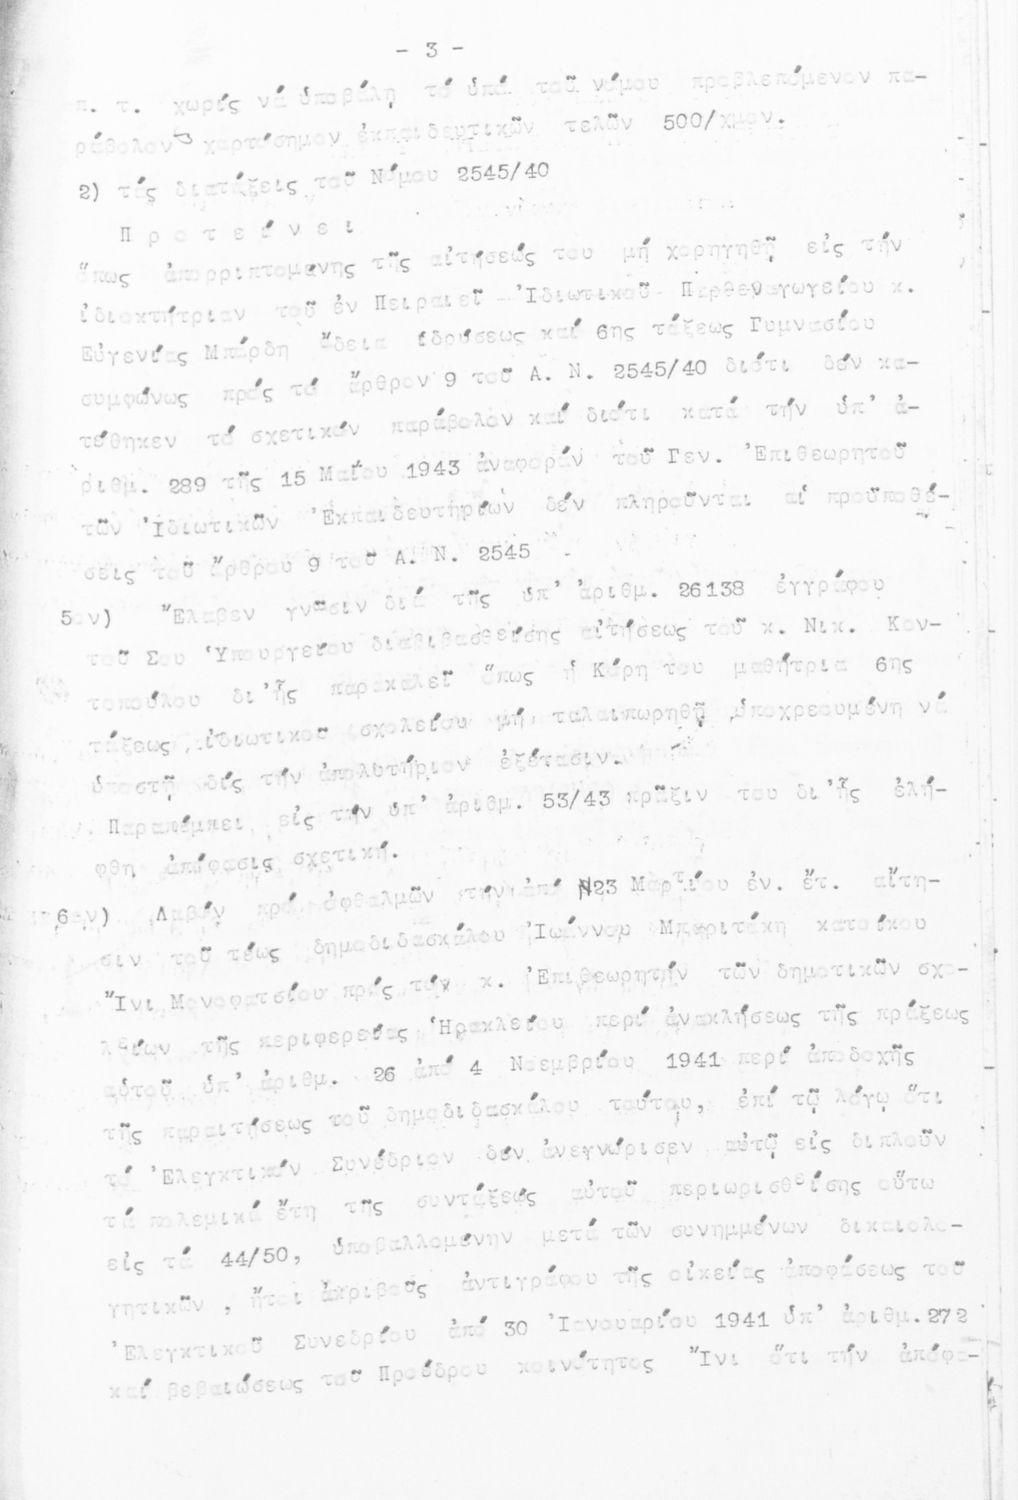 - 3 -
π. τ. χωρίς νά ὑποβάλῃ τό ὑπό τοῦ νόμου προβλεπόμενον πα-
ράβολον χαρτόσημον ἐκπαιδευτικῶν τελῶν 500/χμον.
2) τάς διατάξεις τοῦ Νόμου 2545/40
Π ρ ο τ ε ί ν ε ι
ὅπως ἀπορριπτομένης τῆς αἰτήσεώς του μή χορηγηθῇ εἰς τήν
ἰδιοκτήτριαν τοῦ ἐν Πειραιεῖ Ἰδιωτικοῦ Παρθεναγωγείου κ.
Εὐγενίας Μπάρδη ἄδεια ἱδρύσεως καί 6ης τάξεως Γυμνασίου
συμφώνως πρός τό ἄρθρον 9 τοῦ Α. Ν. 2545/40 διότι δέν κα-
τέθηκεν τό σχετικόν παράβολον καί διότι κατά τήν ὑπ' ἀ-
ριθμ. 289 τῆς 15 Μαΐου 1943 ἀναφοράν τοῦ Γεν. Ἐπιθεωρητοῦ
τῶν Ἰδιωτικῶν Ἐκπαιδευτηρίων δέν πληροῦνται αἱ προϋποθέ-
σεις τοῦ ἄρθρου 9 τοῦ Α. Ν. 2545 -
5ον) Ἔλαβεν γνῶσιν διά τῆς ὑπ' ἀριθμ. 26138 ἐγγράφου
τοῦ Σου Ὑπουργείου διαβιβασθείσης αἰτήσεως τοῦ κ. Νικ. Κον-
τοπούλου δι' ἧς παρακαλεῖ ὅπως ἡ Κόρη του μαθήτρια 6ης
τάξεως ἰδιωτικοῦ σχολείου μή ταλαιπωρηθῇ ὑποχρεουμένη νά
ὑποστῇ δίς τήν ἀπολυτήριον ἐξέτασιν.
Παραπέμπει εἰς τήν ὑπ' ἀριθμ. 53/43 πρᾶξιν του δι' ἧς ἐλή-
φθη ἀπόφασις σχετική.
6ον) Λαβόν πρό ὀφθαλμῶν τήν ἀπό 23 Μαρτίου ἐν. ἔτ. αἴτη-
σιν τοῦ τέως δημοδιδασκάλου Ἰωάννου Μπεριτάκη κατοίκου
Ἴνι Μονοφατσίου πρός τόν κ. Ἐπιθεωρητήν τῶν δημοτικῶν σχο-
λείων τῆς περιφερείας Ἡρακλείου περί ἀνακλήσεως τῆς πράξεως
αὐτοῦ ὑπ' ἀριθμ. 26 ἀπό 4 Νοεμβρίου 1941 περί ἀποδοχῆς
τῆς παραιτήσεως τοῦ δημοδιδασκάλου τούτου, ἐπί τῷ λόγῳ ὅτι
τό Ἐλεγκτικόν Συνέδριον δέν ἀνεγνώρισεν αὐτῷ εἰς διπλοῦν
τά πολεμικά ἔτη τῆς συντάξεώς αὐτοῦ περιωρισθείσης οὕτω
εἰς τά 44/50, ὑποβαλλομένην μετά τῶν συνημμένων δικαιολο-
γητικῶν , ἤτοι ἀκριβοῦς ἀντιγράφου τῆς οἰκείας ἀποφάσεως τοῦ
Ἐλεγκτικοῦ Συνεδρίου ἀπό 30 Ἰανουαρίου 1941 ὑπ' ἀριθμ.272
καί βεβαιώσεως τοῦ Προέδρου κοινότητος Ἴνι ὅτι τήν ἀπόφα-